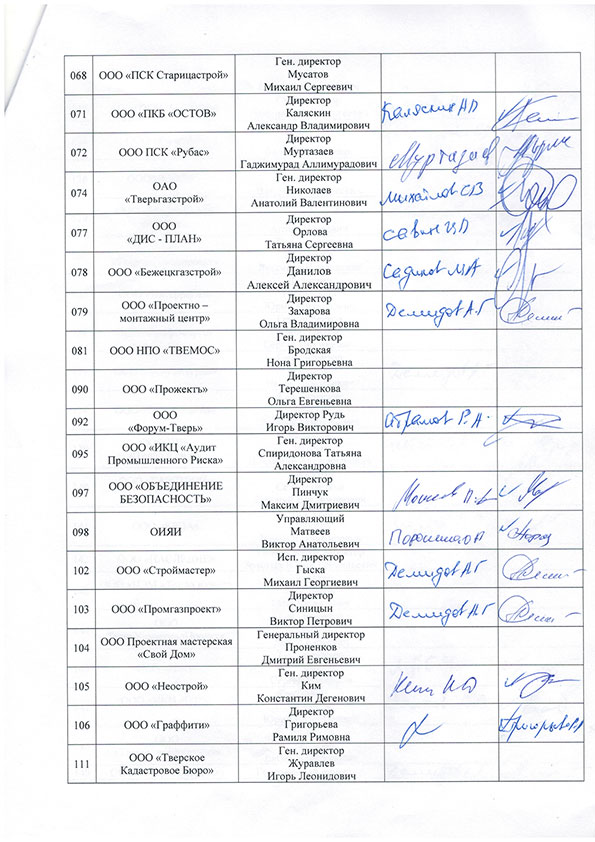 068 ООО «ПСК Старицастрой» Ген. директор
Мусатов
Михаил Сергеевич
071 ООО «ПКБ «ОСТОВ» Директор
Каляскин
Александр Владимирович
Каляскин АВ
072 ООО ПСК «Рубас» Директор
Муртазаев
Гаджимурад Аллимурадович
Муртазаев
074 ОАО
«Тверьгазстрой»
Ген. директор
Николаев
Анатолий Валентинович
Михайлов СВ
077 ООО
«ДИС - ПЛАН»
Директор
Орлова
Татьяна Сергеевна
078 ООО «Бежецкгазстрой» Директор
Данилов
Алексей Александрович
Садиков МА
079 ООО «Проектно –
монтажный центр»
Директор
Захарова
Ольга Владимировна
Демидов А.Г
081 ООО НПО «ТВЕМОС» Ген. директор
Бродская
Нона Григорьевна
090 ООО «Прожектъ» Директор
Терешенкова
Ольга Евгеньевна
092 ООО
«Форум-Тверь»
Директор Рудь
Игорь Викторович
095 ООО «ИКЦ «Аудит
Промышленного Риска»
Ген. директор
Спиридонова Татьяна
Александровна
097 ООО «ОБЪЕДИНЕНИЕ
БЕЗОПАСНОСТЬ»
Директор
Пинчук
Максим Дмитриевич
098 ОИЯИ Управляющий
Матвеев
Виктор Анатольвич
102 ООО «Строймастер» Исп. директор
Гыска
Михаил Георгиевич
Демидов АГ
103 ООО «Промгазпроект» Директор
Синицын
Виктор Петрович
Демидов АГ
104 ООО Проектная мастерская
«Свой Дом»
Генеральный директор
Проненков
Дмитрий Евгеньевич
105 ООО «Неострой» Ген. директор
Ким
Константин Дегенович
Ким КД
106 ООО «Граффити» Директор
Григорьева
Рамиля Римовна
111 ООО «Тверское
Кадастровое Бюро»
Ген. директор
Журавлев
Игорь Леонидович